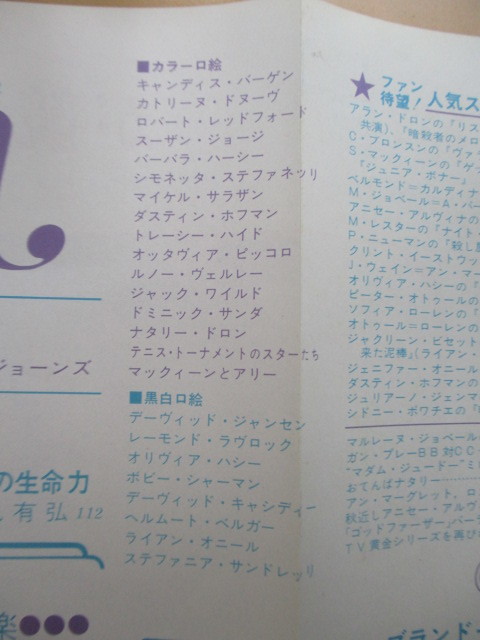 ■カラー口絵
キャンディス・バーゲン
カトリーヌ・ドヌーヴ
ロバート・レッドフォード
スーザン・ジョージ
バーバラ・ハーシー
シモネッタ・ステファネッリ
マイケル・サラザン
ダスティン・ホフマン
トレーシー・ハイド
オッタヴィア・ピッコロ
ルノー・ヴェルレー
ジャック・ワイルド
ドミニック・サンダ
ナタリー・ドロン
テニス・トーナメントのスターたち
マックィーンとアリー
■黒白口絵
デーヴィッド・ジャンセン
レーモンド・ラヴロック
オリヴィア・ハシー
ボビー・シャーマン
デーヴィッド・キャシディー
ヘルムート・ベルガー
ライアン・オニール
ステファニア・サンドレッリ
ジョーンズ
の生命力
有弘 112
楽●●●
★ファン
待望!人気ス
アラン・ドロンの「リス
共演)、「暗殺者のメロ
C・ブロンスンの「ヴァ
S・マックィーンの「ゲッ
「ジュニア・ボナー」
ベルモンド=カルディナ
M・ジョベール=A・パー
アニセー・アルヴィナの
M・レスターの「ナイト・
P・ニューマンの「殺し
クリント・イーストウッ
J・ウェイン=アン・マー
オリヴィア・ハシーの「
ピーター・オトゥールの
ソフィア・ローレンの「
オトゥール=ローレンの
ジャクリーン・ビセット
来た泥棒」(ライアン・
ジェニファー・オニール
ダスティン・ホフマンの
ジュリアーノ・ジェンマ
シドニー・ポワチエの「
マルレーヌ・ジョベール
ガン・プレーBB対CC
"マダム・ジュードー"ミ
おてんばナタリー
アン・マーグレット、ロ
秋近しアニセー・アルヴ
「ゴッドファーザー」パー
TV黄金シリーズを再び
ブランド